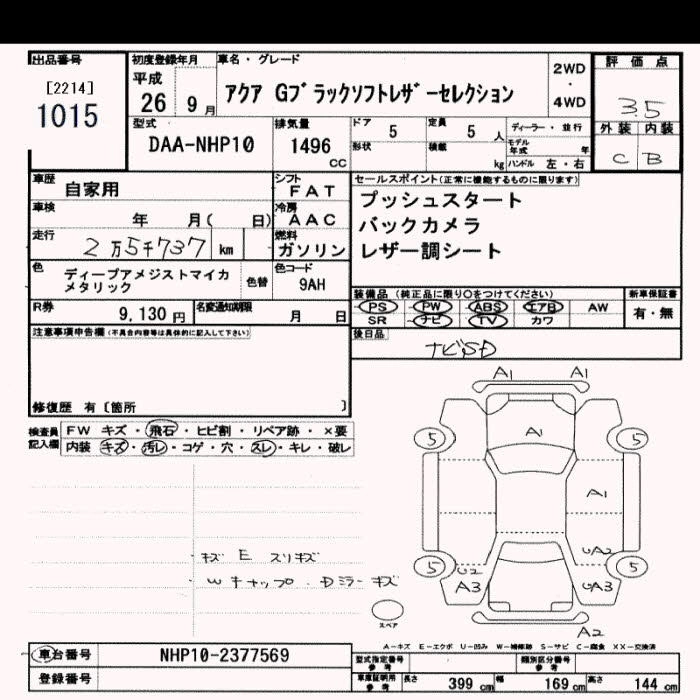 出品番号
[2214]
1015
初度登録年月
平成
26 9 月
車名・グレード
アクア Gブラックソフトレザーセレクション
2WD
・
4WD
評価点
3.5
外装 内装
C B
型式
DAA-NHP10
排気量
1496
CC
ドア
5
定員
5 人
ディーラー・並行
形状
積載
kg
モデル年式
年
ハンドル 左・右
車歴
自家用
シフト
FAT
車検
年 月( 日)
冷房
AAC
走行
2万5千737 km
燃料
ガソリン
色
ディープアメジストマイカメタリック
色替
色コード
9AH
R券
9,130 円
名変通知期限
月 日
セールスポイント(正常に機能するものに限ります)
プッシュスタート
バックカメラ
レザー調シート
装備品 (純正品に限り○をつけてください)
PS PW ABS エアB AW
SR ナビ TV カワ
新車保証書
有・無
後日品
ナビSD
注意事項申告欄(不具合内容等は具体的に記入して下さい)
修復歴 有〔箇所 〕
検査員記入欄
FW キズ・飛石・ヒビ割・リペア跡・×要
内装 キズ・汚レ・コゲ・穴・スレ・キレ・破レ
・キズ E スリキズ
・Wキャップ・Dミラーキズ
A1 A1
5 A1 5
A1
UA2
5 U2 5
A3 UA3
スペア
A2
A-キズ E-エクボ U-凹み W-補修跡 S-サビ C-腐食 XX-交換済
車台番号
NHP10-2377569
登録番号
型式指定番号
参考
類別区分番号
参考
車庫証明用
参考
長さ 399 cm 幅 169 cm 高さ 144 cm